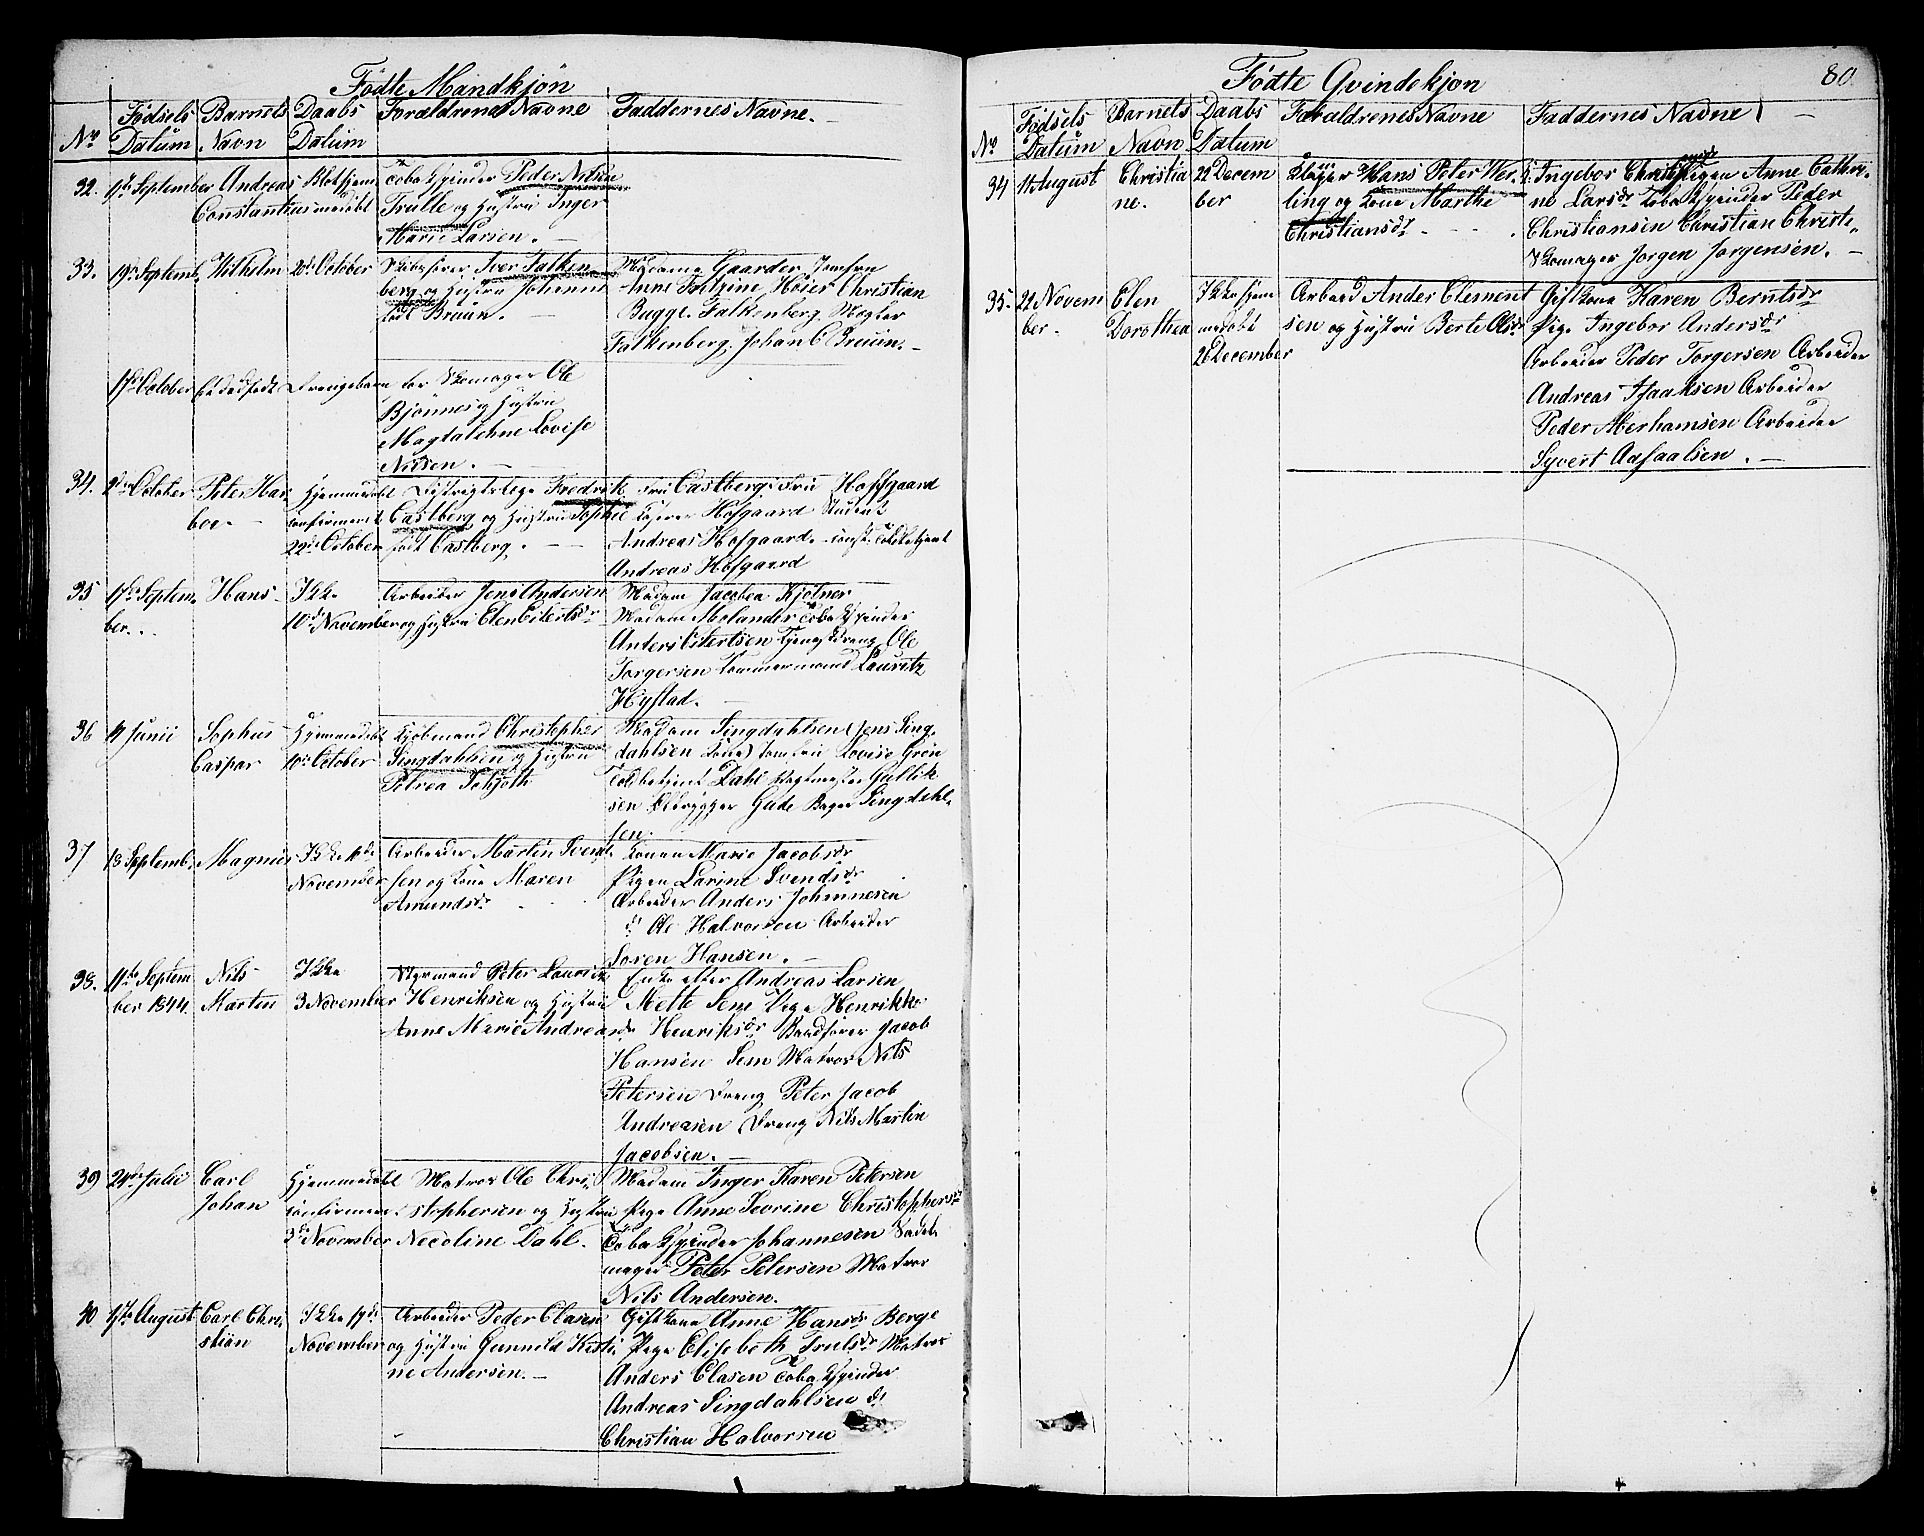 Fødte Mandkjøn
No
Fødsels Datum
Barnets Navn
Daabs Datum
Forældrenes Navne
Faddernes Navne.
32. 17 September
Andreas
Constantius
Blot hjem
medøbt
Tobakspinder Peder Nilsen
Trulle og Hustru Inger
Marie Larsen.
33. 19. Septemb.
Wilhelm
20de October
Skibsfører Iver Falken
berg og Hustru Johanne
født Bruun.
Madame Gaarder Jomfru
Anne Højer Christian
Bugge Falkenberg. Mægler
Falkenberg. Johan C Bruun.
17de October
et dødfødt Drengebarn for Skomager Ole
Bjønnes og Hustru
Magdalehne Lovise
Nilsen.
34. October
Peter Har
boe.
Hjemmedøbt
confirmeret
22de October
Districtslæge Fredrik
Castberg og Hustru Sophie
født Castberg.
Fru Castberg. Fru Hoffgaard
Hofgaard Student
Andreas Hofgaard.
Andreas Hofgaard
35 17de Septem
ber..
Hans
Ikke
10de November
Arbeider Jens Andersen
og Hustru Elen Eilertsdr
Madam Jacobea Kjølner
Madam Molander Tobakspinder
Anders Eilertsen Tjenestdreng Ole
Torgersen Tømmermand Lauritz
Hystad.
36 Junii
Sophus
Caspar
Hjemmedøbt
10de October
Kjøbmand Christopher
Singdahlsen og Hustru
Petrea
Madam Singdahlsen (Jens Sing
dahlsen Kone) Jomfru Lovise Grøn
Toldbetjent Dahl Vagtmester Gullik
sen Ølbrygger Gude Bager Singdahl
sen.
37 13 Septemb.
Magnus
Ikke
November
Arbeider Martin Svend
sen og Kone Maren
Amundsdr
Konen Marie Jacobsdr
Pigen Larine Svendsdr
Arbeider Anders Johannesen
d. Ole Halvorsen Arbeider
Søren Hansen.
38. 11te Septem
ber 1844.
Nils
Martin
Ikke
3 November
Styrmand Peter Lauritz
Henriksen og Hustru
Anne Marie Andreasdr
Enke efter Andreas Larsen
Mette Sem Pige Henrikke
Henriksdr Baadfører Jacob
Hansen Sem Matros Nils
Petersen Dreng Peter Jacob
Andreasen Dreng Nils Martin
Jacobsen.
39 24de Julii
Carl
Johan
Hjemmedøbt
confirmere
3de November
Matros Ole Chri
stophersen og Hustru
Necoline Dahl.
Madam Inger Karen Petersen
Pige Anne Sevrine Christophersdr
Tobakspinder Johannesen Sadel
mager Peter Petersen Matros
Nils Andersen.
40 17de August
Carl Chri
stian
Ikke 17de
November
Arbeider Peder Clasen
og Hustru Gunnild Kirsti
ne Andersen.
Gift Kone Anne Hansdr Berge
Pige Elisebeth Trulsdr Matros
Anders Clasen Tobakspinder
Andreas Singdahlsen d.
Christian Halvorsen
80.
Fødte Qvindekjøn
No
Fødsels Datum
Barnets Navn
Daabs Datum
Forældrenes Navne
Faddernes Navne
34 11 August
Christia
ne.
22 Decem
ber
Hans Peter Wer
ling og Kone Marthe
Christiansdr
Ingebor Pigen Anne Cathri
ne Larsdr Tobakspinder Peder
Christiansen Christian Christi
Skomager Jørgen Jørgensen.
35. 22 Novem
ber.
Elen
Dorothea
Ikke hjem
medøbt
26 December
Arbeid Anders Clement
sen og Hustru Berte Olsdr
Gift Kone Karen Berntsdr
Pige Ingebor Andersdr
Arbeider Peder Torgersen Arbeider
Andreas Isaaksen Arbeider
Peder Aberhamsen Arbeider
Syvert Aasaalsen.